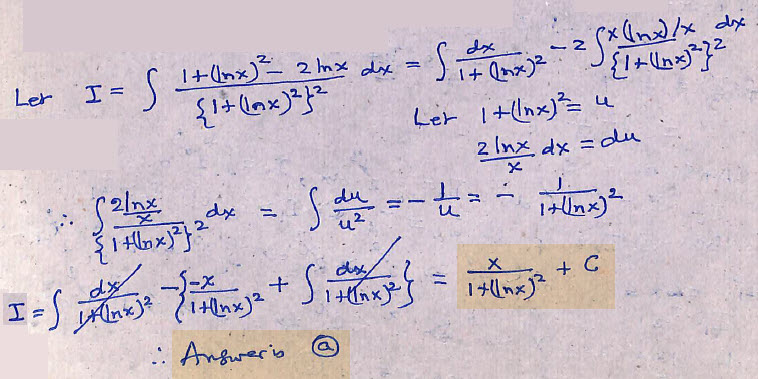 Let I = ∫ (1+(lnx)² − 2lnx)/{1+(lnx)²}² dx = ∫ dx/(1+(lnx)²) − 2 ∫ (x(lnx)/x)/{1+(lnx)²}² dx
Let 1+(lnx)² = u
2lnx/x dx = du
∴ ∫ (2lnx/x)/{1+(lnx)²}² dx = ∫ du/u² = −1/u = − 1/(1+(lnx)²)
I = ∫ dx/(1+(lnx)²) − {−x/(1+(lnx)²) + ∫ dx/(1+(lnx)²)} = x/(1+(lnx)²) + C
∴ Answer is ⓐ